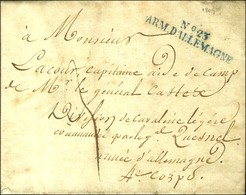 N° 23
ARM. D'ALLEMAGNE
à Monsieur
Lacour, capitaine aide de camp
de Mr. le général Castex
Division de cavalerie légère
commandée par le gal Quesnel
armée d'allemagne
4e corps